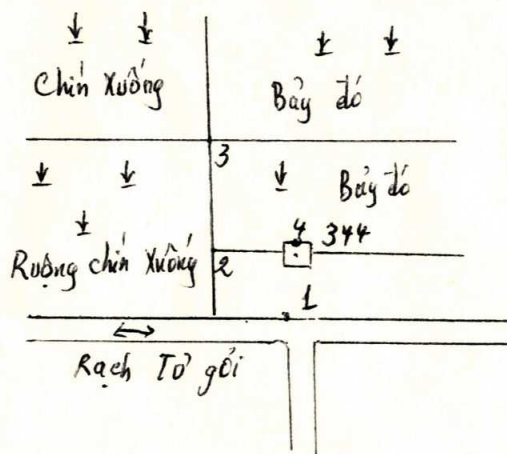 Chín Xuống
Bảy đó
3
Bảy đó
4 344
Ruộng chín Xuống
2
1
Rạch Tư gỏi